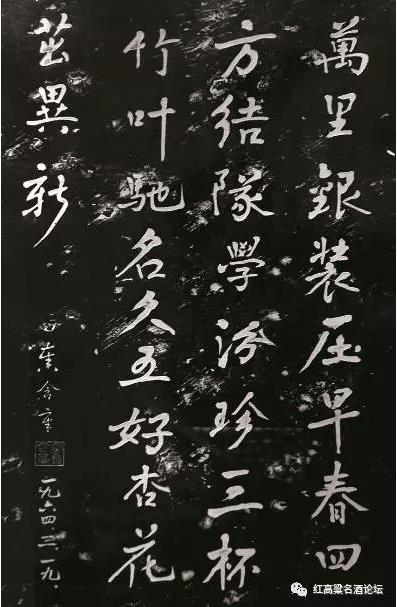 萬里銀装压早春四
方结隊學汾珍三杯
竹叶馳名久五好杏花
茁異新
秦含章
一九六四三一九
红高粱名酒论坛